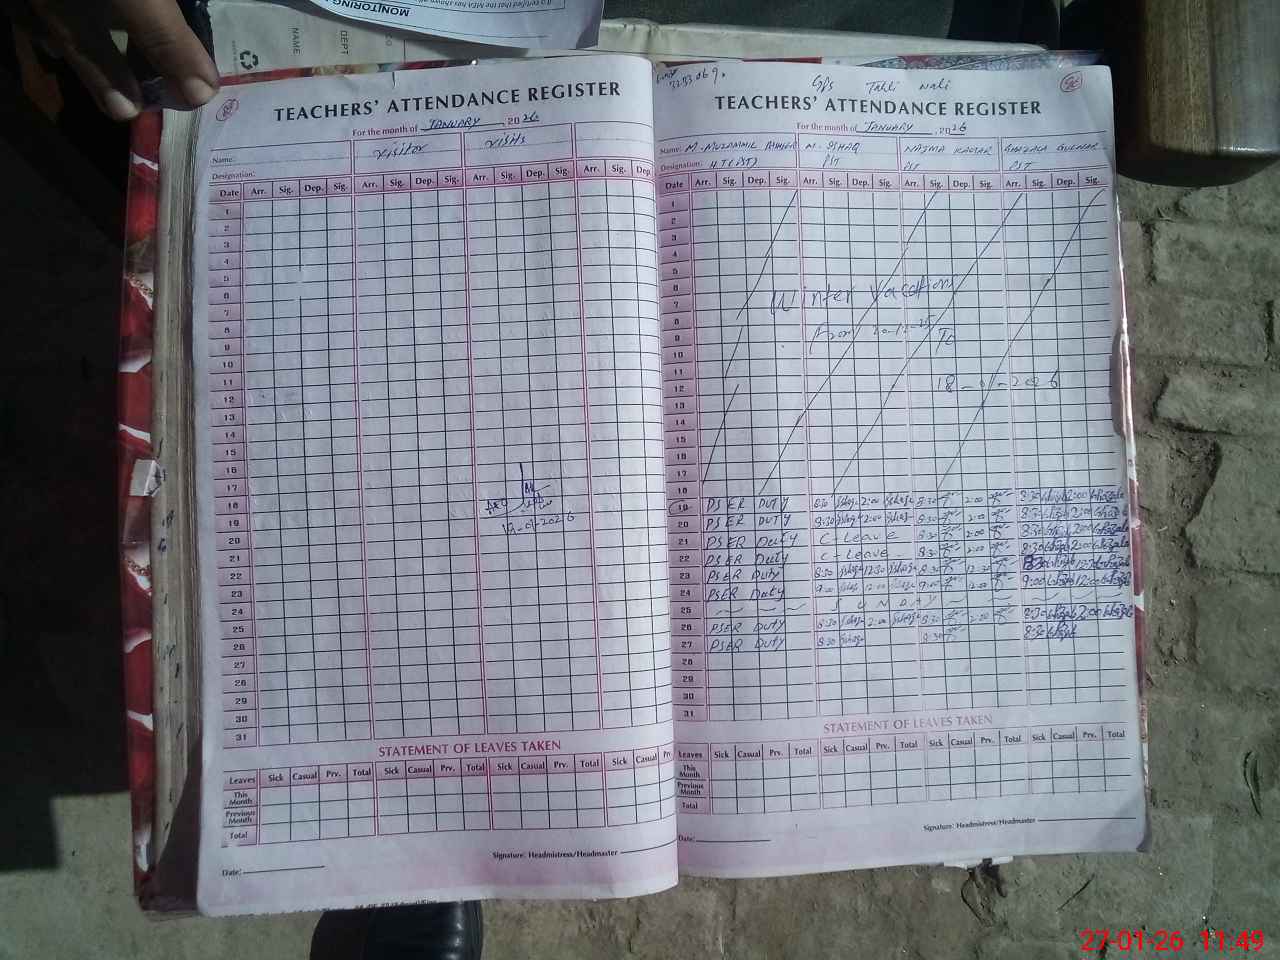 MONITORING
NAME
DEPT
TEACHERS' ATTENDANCE REGISTER
For the month of JANUARY 2026
Name: visitor visits
Designation:
Date Arr. Sig. Dep. Sig. Arr. Sig. Dep. Sig. Arr. Sig. Dep. Sig. Arr. Sig. Dep.
1
2
3
4
5
6
7
8
9
10
11
12
13
14
15
16
17
18
19 19-01-2026
20
21
22
23
24
25
26
27
28
29
30
31
STATEMENT OF LEAVES TAKEN
Leaves Sick Casual Prv. Total Sick Casual Prv. Total Sick Casual Prv. Total Sick Casual Prv.
This Month
Previous Month
Total
Signature: Headmistress/Headmaster
Date:
GPS Tahli Wali
TEACHERS' ATTENDANCE REGISTER
For the month of JANUARY, 2026
Name: M. MUZAMMIL M. ISHAQ NAJMA KAUSAR GHAZALA GULNAR
Designation: H.T(PST) PST PST PST
Date Arr. Sig. Dep. Sig. Arr. Sig. Dep. Sig. Arr. Sig. Dep. Sig. Arr. Sig. Dep. Sig.
1
2
3
4
5
6
7 Winter Vacations
8
9 From 20-12-25 To
10
11
12 18-01-2026
13
14
15
16
17
18
19 PSER DUTY 8:30 Ishaq 2:00 Ishaq 8:30 2:00 8:30 Ghazala 2:00 Ghazala
20 PSER DUTY 8:30 Ishaq 2:00 Ishaq 8:30 2:00 8:30 Ghazala 2:00 Ghazala
21 PSER Duty C-Leave 8:30 2:00 8:30 Ghazala 2:00 Ghazala
22 PSER Duty C-Leave 8:30 2:00 8:30 Ghazala 2:00 Ghazala
23 PSER Duty 8:30 Ishaq 12:30 Ishaq 8:30 12:30 8:30 Ghazala 12:30 Ghazala
24 PSER Duty 9:00 Ishaq 12:00 Ishaq 9:00 12:00 9:00 Ghazala 12:00 Ghazala
25 SUNDAY
26 PSER DUTY 8:30 Ishaq 2:00 Ishaq 8:30 2:00 8:30 Ghazala 2:00 Ghazala
27 PSER DUTY 8:30 Ishaq 8:30 8:30 Ghazala
28
29
30
31
STATEMENT OF LEAVES TAKEN
Leaves Sick Casual Prv. Total Sick Casual Prv. Total Sick Casual Prv. Total Sick Casual Prv. Total
This Month
Previous Month
Total
Signature: Headmistress/Headmaster
Date:
27-01-26 11:49